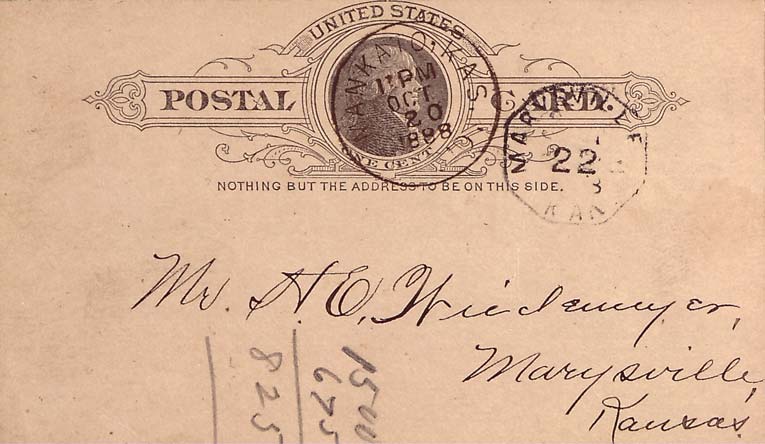 UNITED STATES
POSTAL CARD.
ONE CENT
MANKATO, KAS.
1 PM
OCT
20
1888
MARYSVILLE
22
KAN
NOTHING BUT THE ADDRESS TO BE ON THIS SIDE.
Mr. H. E. Wiedemeyer,
Marysville,
Kansas
1500
675
825